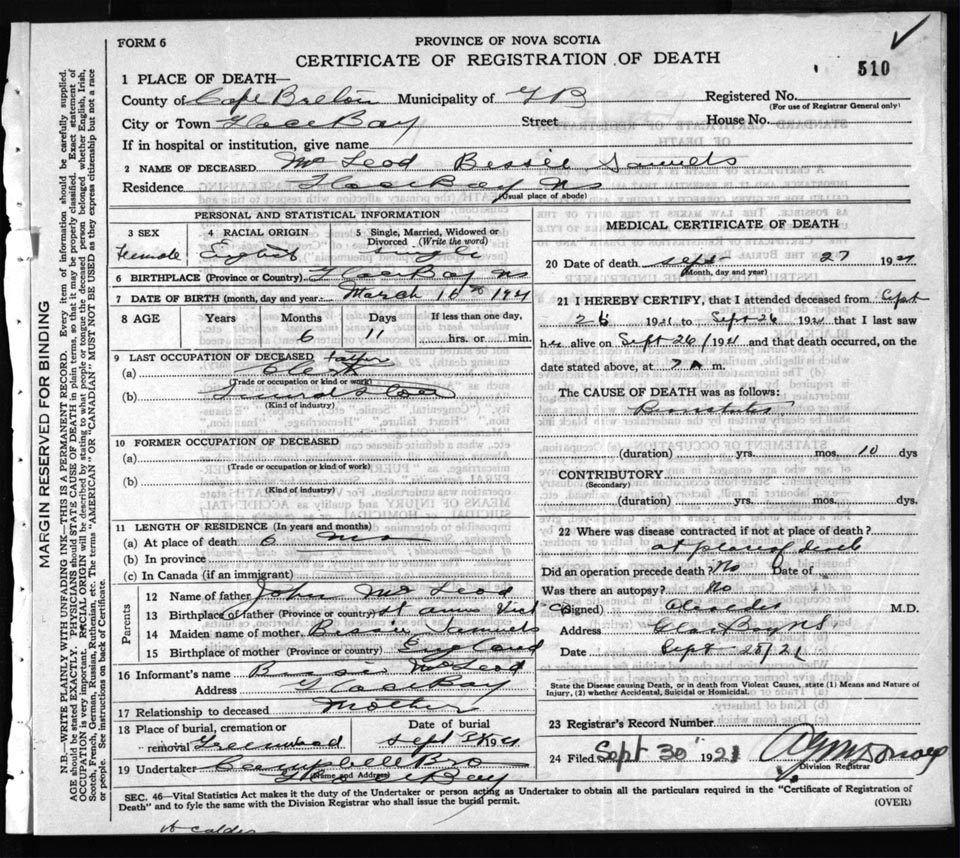 FORM 6
PROVINCE OF NOVA SCOTIA
CERTIFICATE OF REGISTRATION OF DEATH
510
1 PLACE OF DEATH—
County of Cape Breton Municipality of G B Registered No.
(For use of Registrar General only)
City or Town Glace Bay Street House No.
If in hospital or institution, give name
2 NAME OF DECEASED McLeod Bessie Samuels
Residence Glace Bay NS
(Usual place of abode)
PERSONAL AND STATISTICAL INFORMATION
3 SEX 4 RACIAL ORIGIN 5 Single, Married, Widowed or Divorced (Write the word)
Female English Single
6 BIRTHPLACE (Province or Country) Glace Bay NS
7 DATE OF BIRTH (month, day and year) March 16th 1921
8 AGE Years Months Days If less than one day,
6 11 hrs. or min.
9 LAST OCCUPATION OF DECEASED father
(a) Clerk
(Trade or occupation or kind or work)
(b) General Store
(Kind of industry)
10 FORMER OCCUPATION OF DECEASED
(a)
(Trade or occupation or kind of work)
(b)
(Kind of industry)
11 LENGTH OF RESIDENCE (In years and months)
(a) At place of death 6 mo
(b) In province
(c) In Canada (if an immigrant)
Parents
12 Name of father John McLeod
13 Birthplace of father (Province or country) St Anns Vict Co
14 Maiden name of mother Bessie Samuels
15 Birthplace of mother (Province or country) England
16 Informant's name Bessie McLeod
Address Glace Bay
17 Relationship to deceased Mother
18 Place of burial, cremation or removal Greenwood
Date of burial
Sept
19 Undertaker Campbell Bro
(Name and Address)
Glace Bay
MEDICAL CERTIFICATE OF DEATH
20 Date of death Sept 27 1921
(Month, day and year)
21 I HEREBY CERTIFY, that I attended deceased from Sept
26 1921 to Sept 26 1921 that I last saw
her alive on Sept 26/1921 and that death occurred, on
date stated above, at 7 A m.
The CAUSE OF DEATH was as follows:
Bronchitis
(duration) yrs. mos. 10 dys
CONTRIBUTORY
(Secondary)
(duration) yrs. mos. dys.
22 Where was disease contracted if not at place of death?
at place of death
Did an operation precede death? No Date of
Was there an autopsy? No
(Signed) M.D.
Address Glace Bay NS
Date Sept 28/21
State the Disease causing Death, or in death from Violent Causes, state (1) Means and Nature of Injury, (2) whether Accidental, Suicidal or Homicidal.
23 Registrar's Record Number
24 Filed Sept 30 1921
Division Registrar
SEC. 46—Vital Statistics Act makes it the duty of the Undertaker or person acting as Undertaker to obtain all the particulars required in the "Certificate of Registration of
Death" and to fyle the same with the Division Registrar who shall issue the burial permit.
(OVER)
MARGIN RESERVED FOR BINDING
N.B.—WRITE PLAINLY WITH UNFADING INK—THIS IS A PERMANENT RECORD. Every item of information should be carefully supplied.
AGE should be stated EXACTLY. PHYSICIANS should STATE CAUSE OF DEATH in plain terms, so that it may be properly classified. Exact statement of
OCCUPATION is very important. RACIAL ORIGIN will be described by stating to what people or tongue the deceased person belonged whether English, Irish,
Scotch, French, German, Russian, Ruthenian, etc. The terms "AMERICAN" or "CANADIAN" MUST NOT BE USED as they express citizenship but not a race
or people. See instructions on back of Certificate.